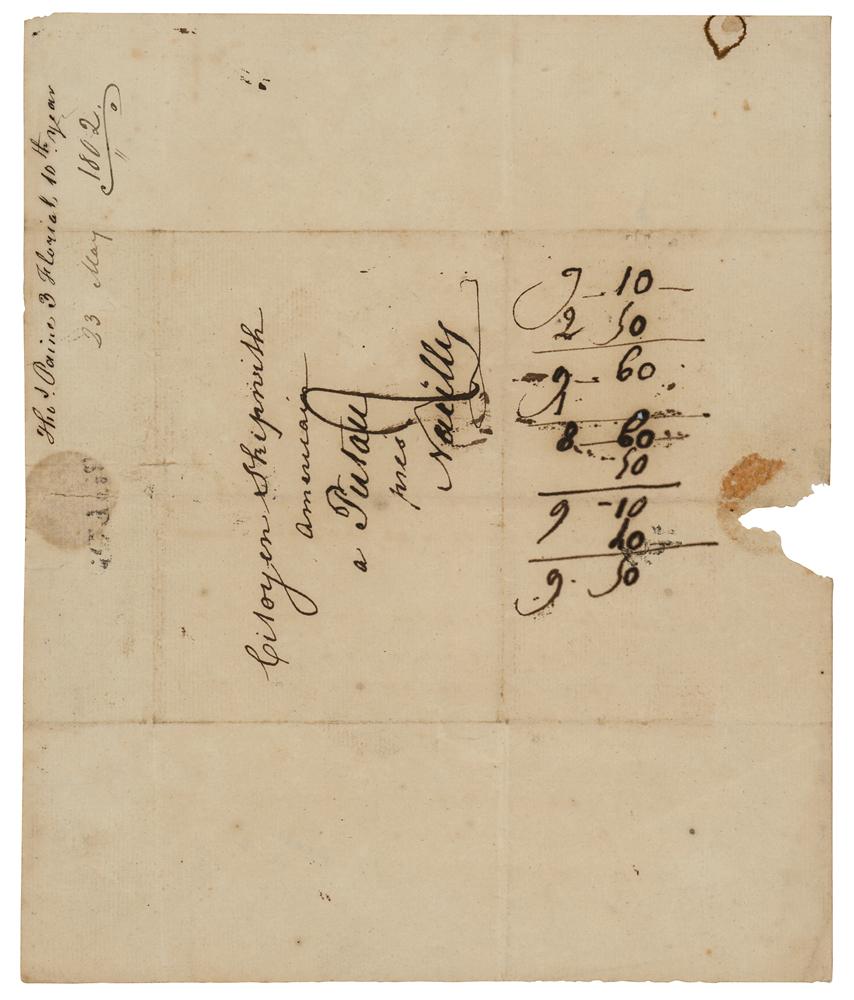 Thos Paine 3 Florial, 10th year
23 May 1802.
Citoyen Skipwith
americain
a Putau
pres
Nauilly
7 - 10 -
2 50
9 - 60
1
8 - 60
50
9 - 10
40
9. 50